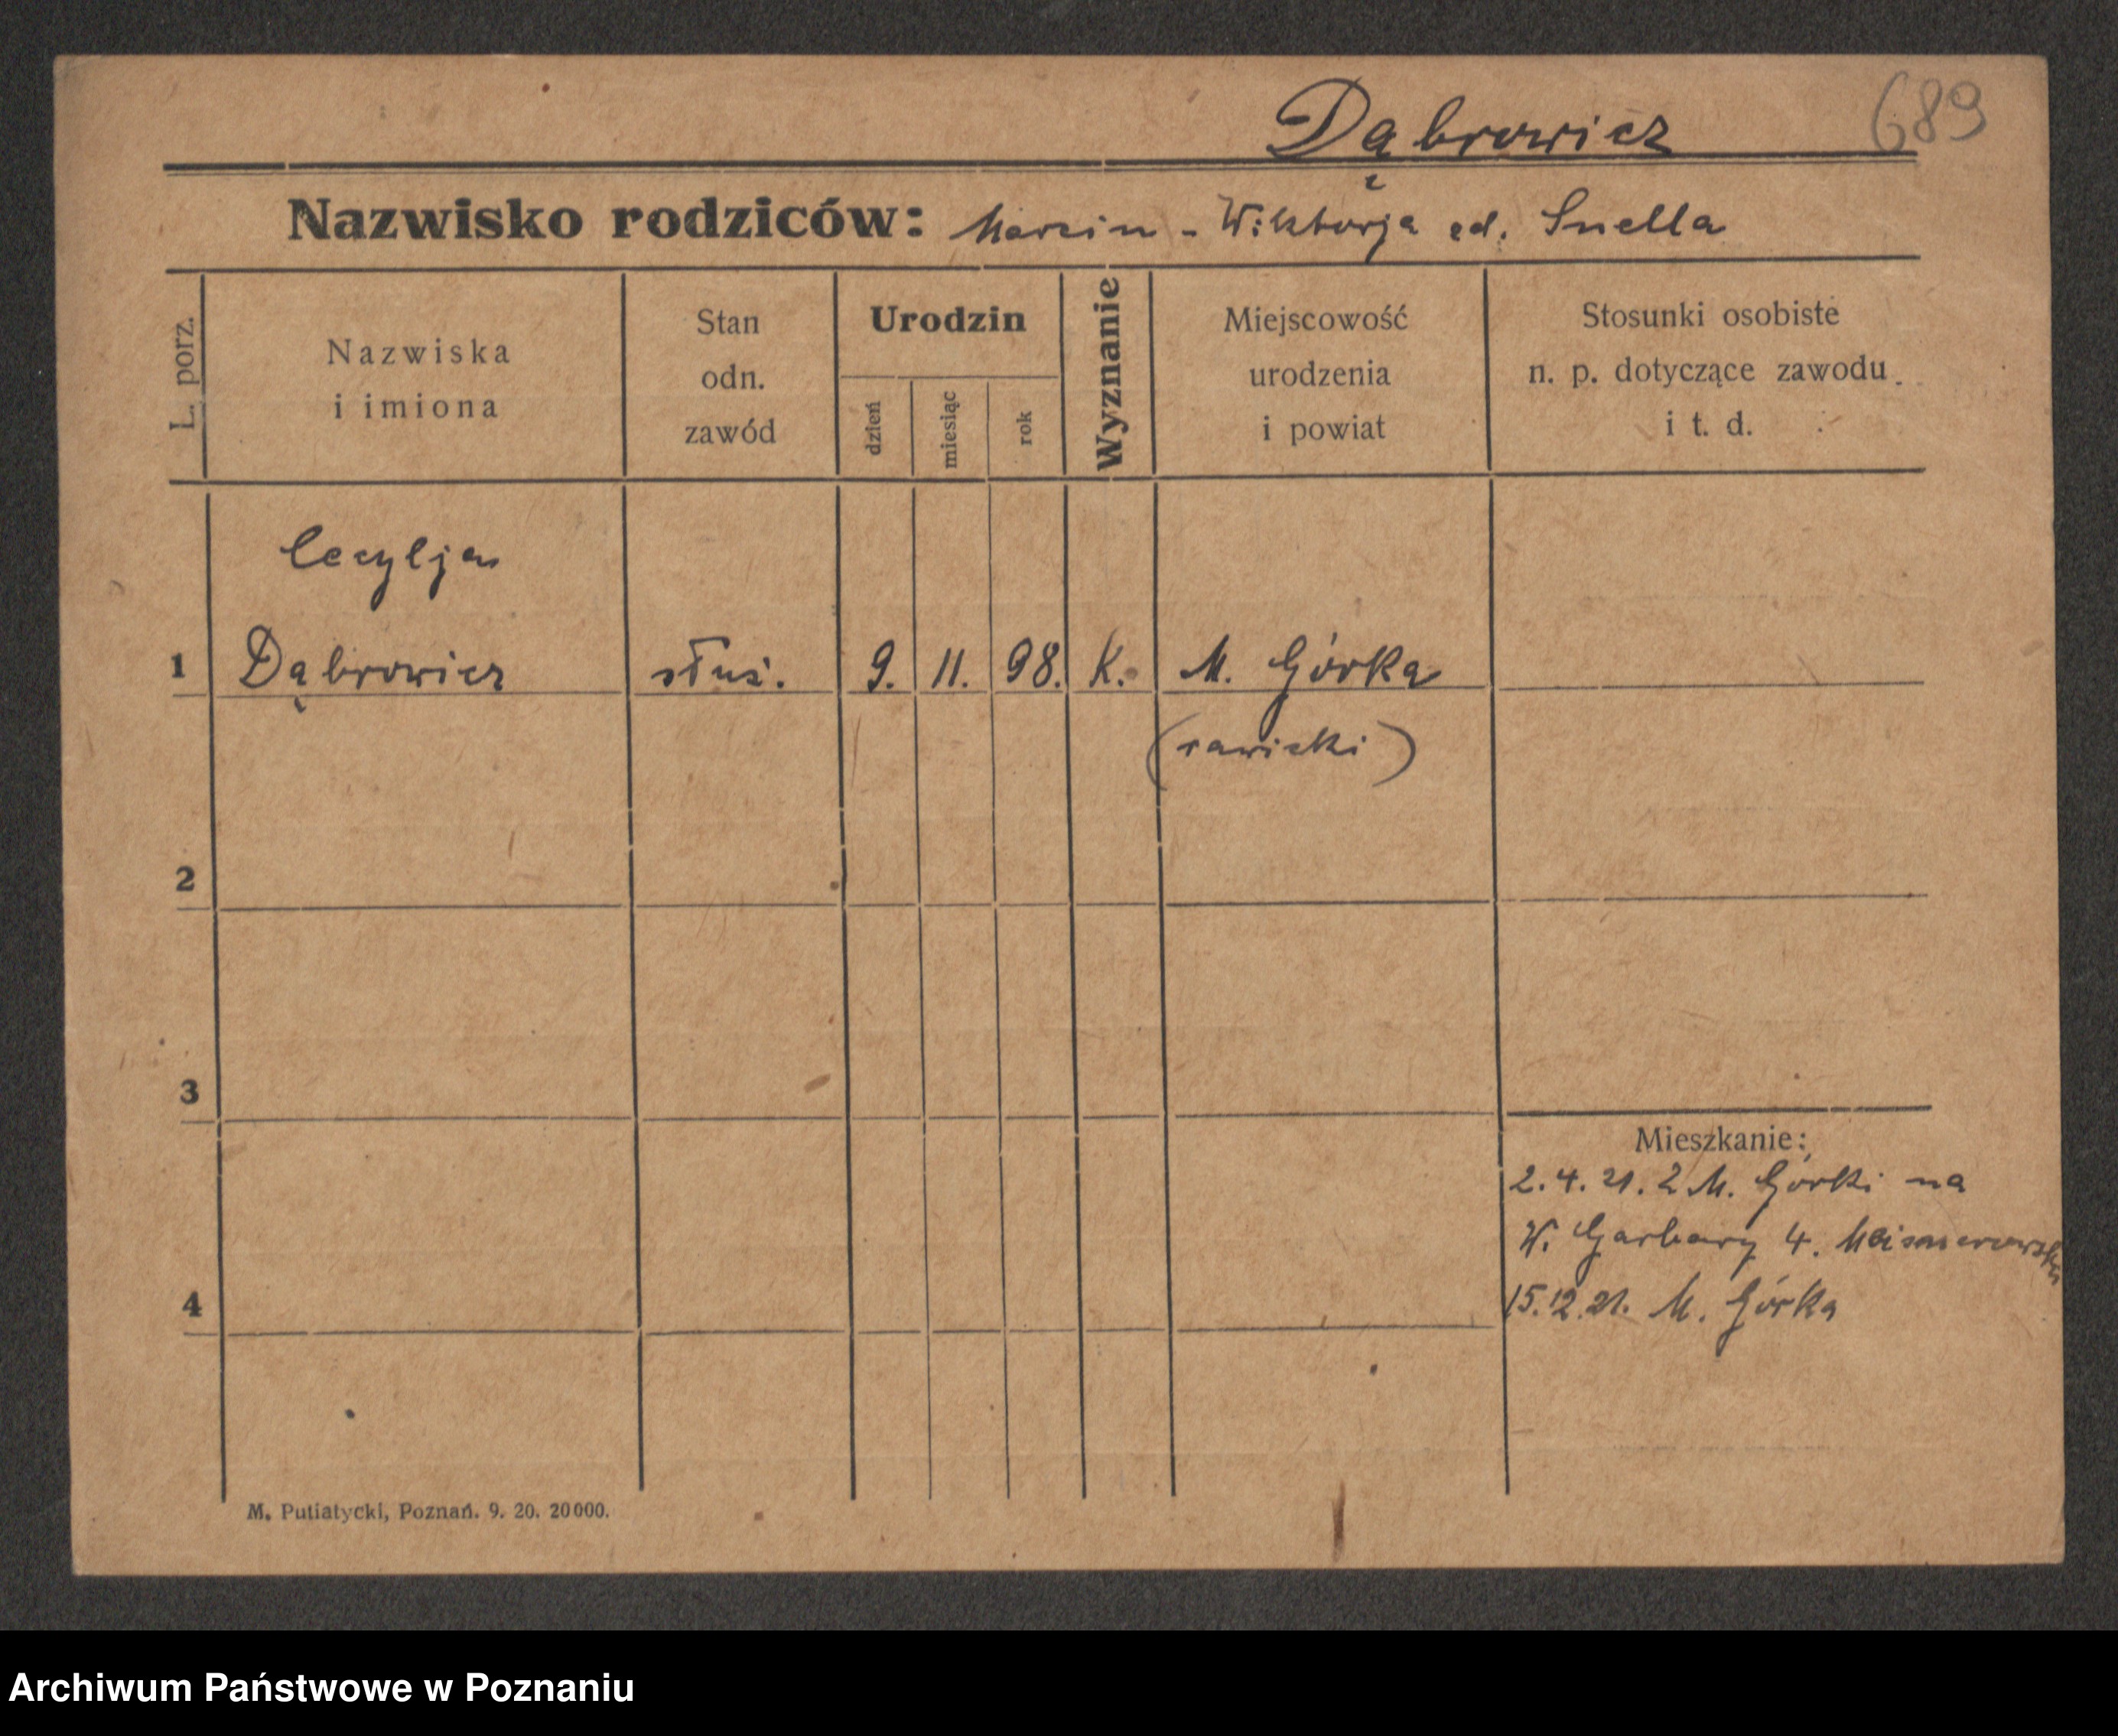 Dąbrowicz 689
Nazwisko rodziców: Marcin - Wiktorja zd. Snella
L. porz.
Nazwiska
i imiona
Stan
odn.
zawód
Urodzin
dzień
miesiąc
rok
Wyznanie
Miejscowość
urodzenia
i powiat
Stosunki osobiste
n. p. dotyczące zawodu
i t. d.
Cecylja
1 Dąbrowicz służ. 9. 11. 98. K. M. Górka
(rawicki)
2
3
Mieszkanie:
2.4.21. z M. Górki na
W. Garbary 4.
4 15.12.21. M. Górka
M. Putiatycki, Poznań. 9. 20. 20000.
Archiwum Państwowe w Poznaniu